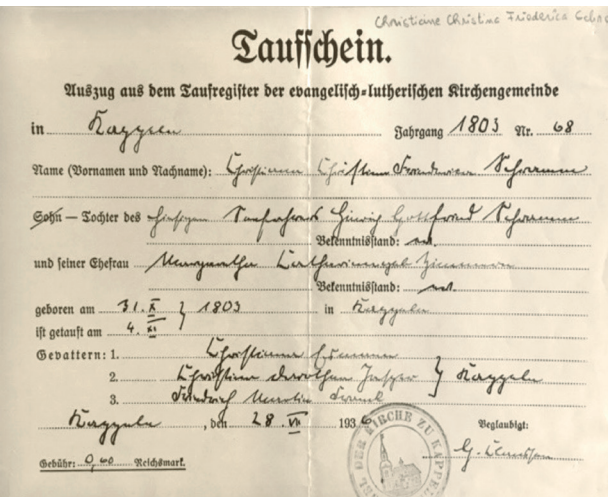 Christiane Christina Friederica
Taufschein.
Auszug aus dem Taufregister der evangelisch-lutherischen Kirchengemeinde
in Kappeln Jahrgang 1803 Nr. 68
Name (Vornamen und Nachname): Christiane Christina Friederica Schramm
Sohn — Tochter des hiesigen Seefahrers Hinrich Gottfried Schramm
Bekenntnisstand: ev.
und seiner Ehefrau Margaretha Catharina geb. Zimmern
Bekenntnisstand: ev.
geboren am 31. X } 1803 in Kappeln
ist getauft am 4. XI
Gevattern: 1. Christiana
2. Christina Dorothea Jasper } Kappeln
3. Friedrich Martin
Kappeln, den 28 VII 1936 Beglaubigt:
G. Clausen
Gebühr: 0,60 Reichsmark.
DER KIRCHE ZU KAPPE